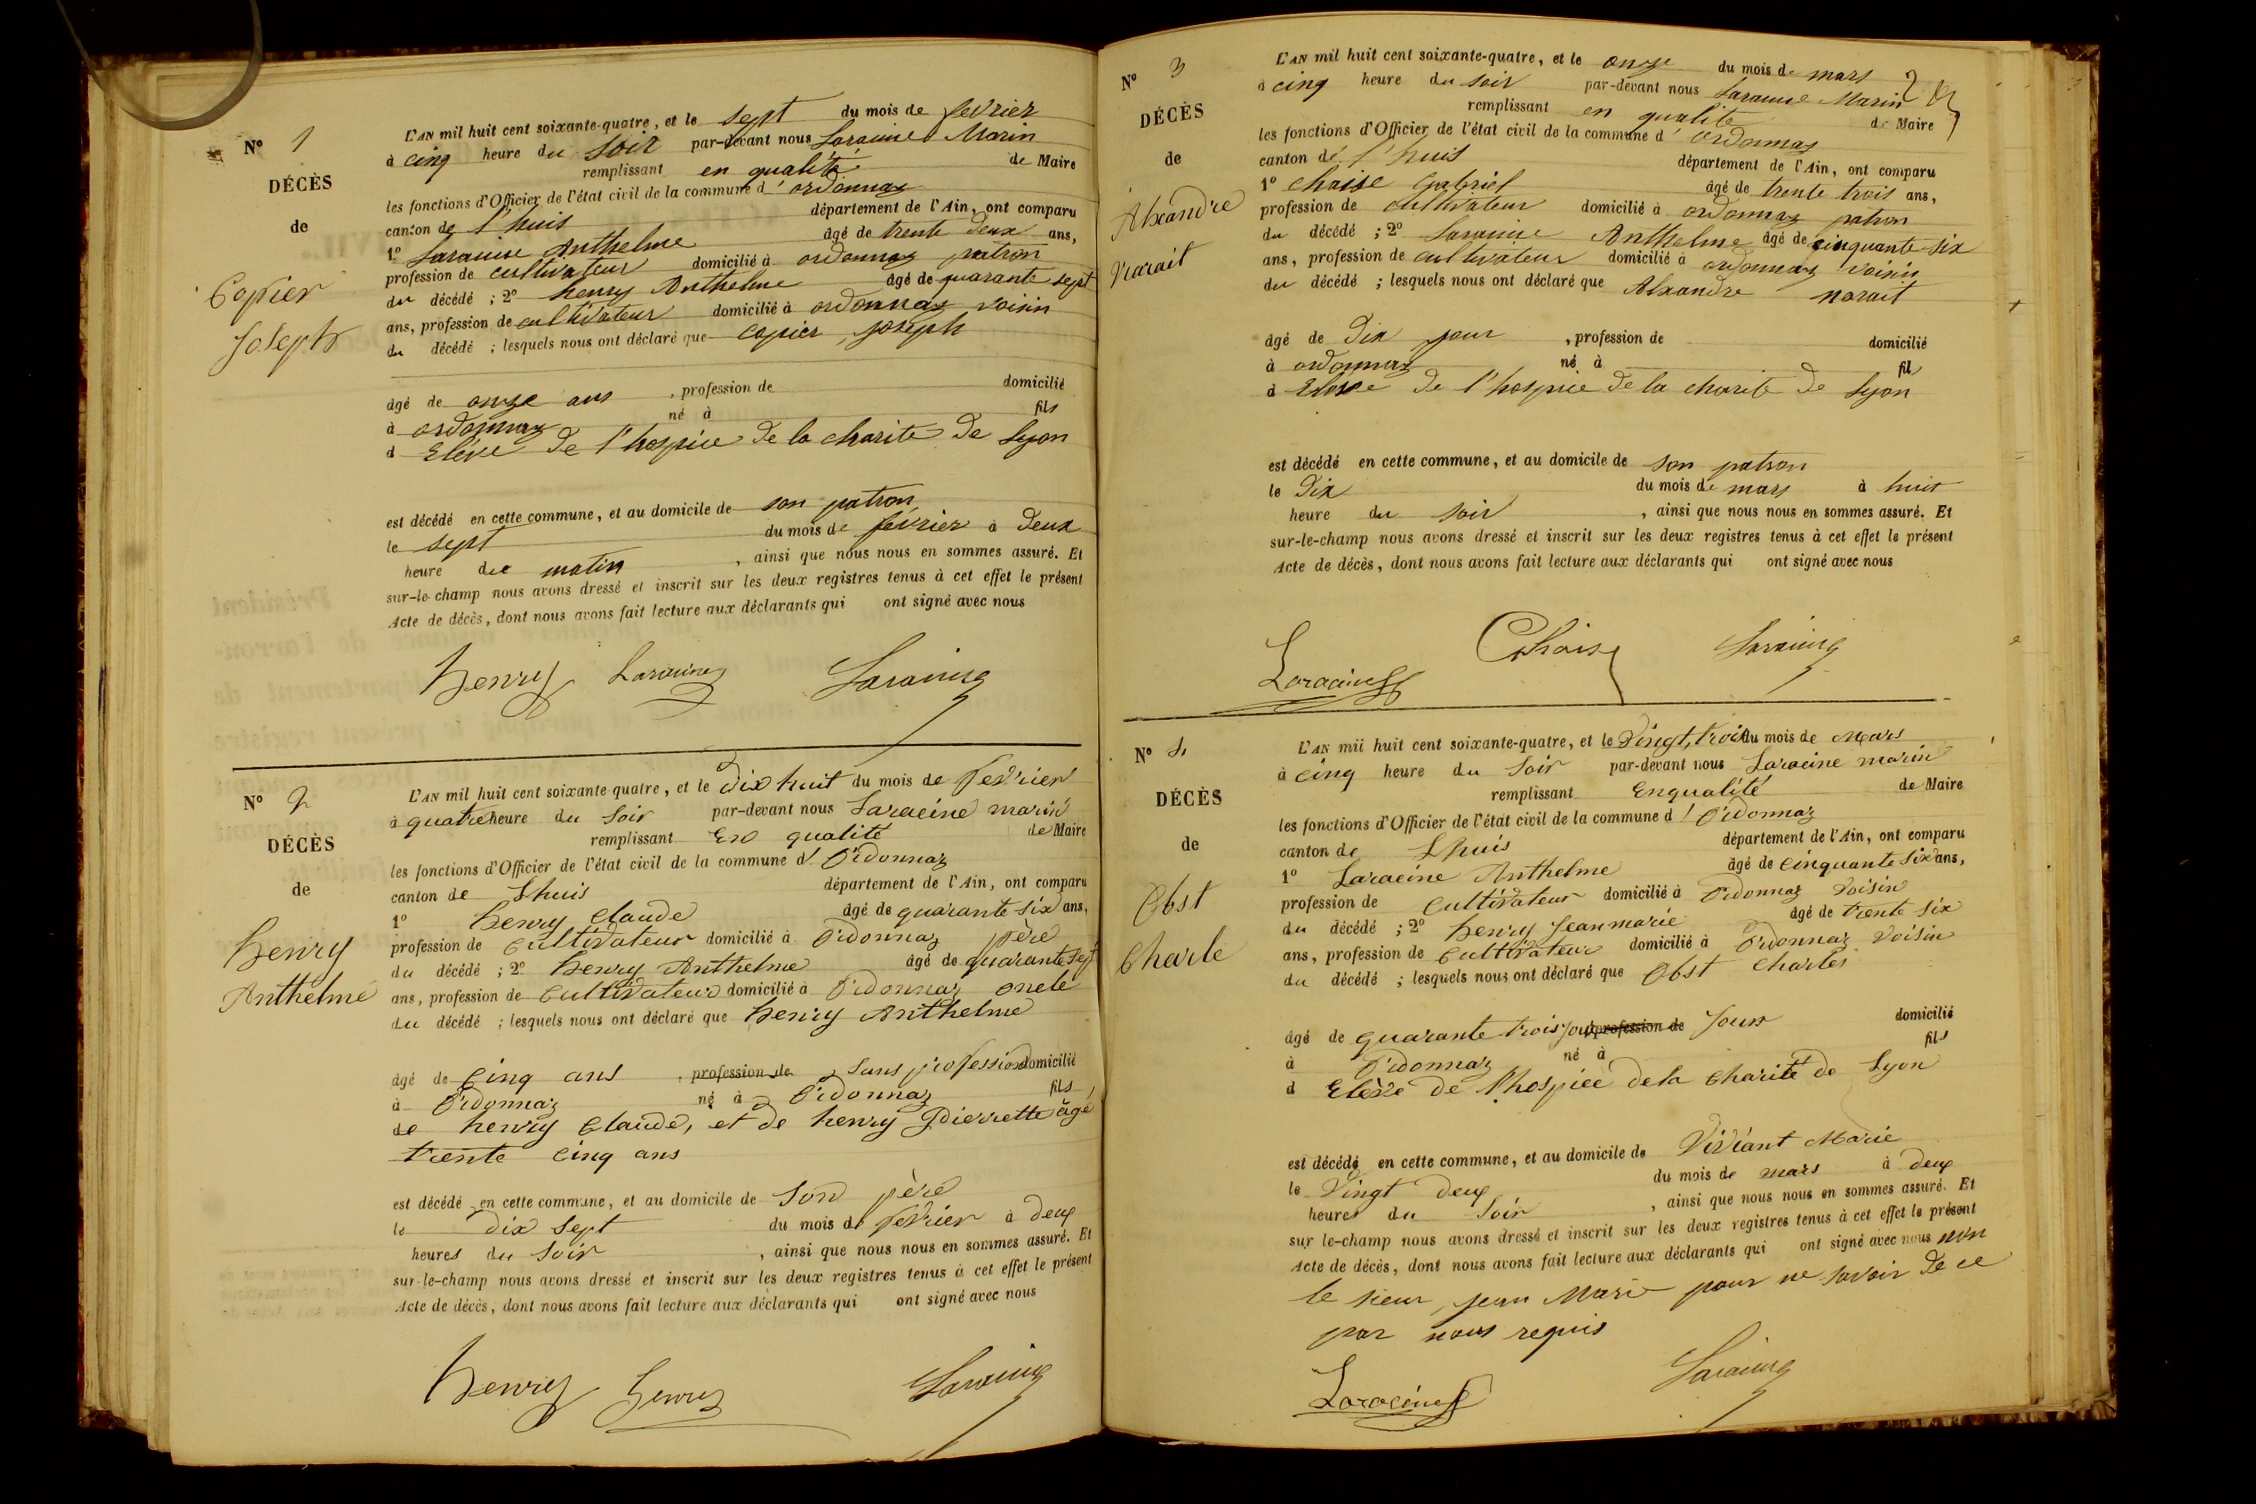 N° 1
DÉCÈS
de
Copier
Joseph
L'AN mil huit cent soixante-quatre, et le sept du mois de fevrier
à cinq heure du soir par-devant nous Laracine Marin
remplissant en qualité de Maire
les fonctions d'Officier de l'état civil de la commune d' ordonnaz
canton de l'huis département de l'Ain, ont comparu
1° Laracine Anthelme âgé de trente deux ans,
profession de cultivateur domicilié à ordonnaz patron
du décédé ; 2° henry Anthelme âgé de quarante sept
ans, profession de cultivateur domicilié à ordonnaz voisin
du décédé ; lesquels nous ont déclaré que copier joseph
âgé de onze ans , profession de domicilié
à ordonnaz né à fils
d Elève de l'hospice de la charite de lyon
est décédé en cette commune, et au domicile de son patron
le sept du mois de février à deux
heure du matin , ainsi que nous nous en sommes assuré. Et
sur-le-champ nous avons dressé et inscrit sur les deux registres tenus à cet effet le présent
Acte de décès, dont nous avons fait lecture aux déclarants qui ont signé avec nous
henry Laracine Laracine
N° 2
DÉCÈS
de
henry
Anthelme
L'AN mil huit cent soixante-quatre, et le dix huit du mois de Fevrier
à quatre heure du soir par-devant nous Laracine marin
remplissant En qualité de Maire
les fonctions d'Officier de l'état civil de la commune d' Ordonnaz
canton de Lhuis département de l'Ain, ont comparu
1° henry claude âgé de quarante six ans,
profession de cultivateur domicilié à Ordonnaz père
du décédé ; 2° henry Anthelme âgé de quarante sept
ans, profession de cultivateur domicilié à Ordonnaz oncle
du décédé ; lesquels nous ont déclaré que henry Anthelme
âgé de cinq ans , profession de sans profession domicilié
à Ordonnaz né à Ordonnaz fils
de henry claude, et de henry Pierrette âgé
trente cinq ans
est décédé en cette commune, et au domicile de son père
le dix sept du mois de fevrier à deux
heures du soir , ainsi que nous nous en sommes assuré. Et
sur-le-champ nous avons dressé et inscrit sur les deux registres tenus à cet effet le présent
Acte de décès, dont nous avons fait lecture aux déclarants qui ont signé avec nous
henry henry Laracine
N° 3
DÉCÈS
de
Alxandre
narait
L'AN mil huit cent soixante-quatre, et le onze du mois de mars
à cinq heure du soir par-devant nous Laracine Marin
remplissant en qualité de Maire
les fonctions d'Officier de l'état civil de la commune d' ordonnaz
canton de l'huis département de l'Ain, ont comparu
1° chaise Gabriel âgé de trente trois ans,
profession de cultivateur domicilié à ordonnaz patron
du décédé ; 2° Laracine Anthelme âgé de cinquante six
ans, profession de cultivateur domicilié à ordonnaz voisin
du décédé ; lesquels nous ont déclaré que Alxandre narait
âgé de dix jour , profession de domicilié
à ordonnaz né à fils
d Elève de l'hospice de la charite de lyon
est décédé en cette commune, et au domicile de son patron
le dix du mois de mars à huit
heure du soir , ainsi que nous nous en sommes assuré. Et
sur-le-champ nous avons dressé et inscrit sur les deux registres tenus à cet effet le présent
Acte de décès, dont nous avons fait lecture aux déclarants qui ont signé avec nous
Laracine Chaise Laracine
N° 4
DÉCÈS
de
Obst
Charle
L'AN mil huit cent soixante-quatre, et le Vingt, trois du mois de Mars
à cinq heure du soir par-devant nous Laracine marin
remplissant Enqualité de Maire
les fonctions d'Officier de l'état civil de la commune d' Ordonnaz
canton de Lhuis département de l'Ain, ont comparu
1° Laracine Anthelme âgé de cinquante six ans,
profession de cultivateur domicilié à Ordonnaz voisin
du décédé ; 2° henry Jeanmarie âgé de trente six
ans, profession de cultivateur domicilié à Ordonnaz voisin
du décédé ; lesquels nous ont déclaré que Obst Charles
âgé de quarante trois jour profession de Jours domicilié
à Ordonnaz né à fils
d Elève de l'hospice de la charité de Lyon
est décédé en cette commune, et au domicile de Viviant Marie
le Vingt deux du mois de mars à deux
heures du soir , ainsi que nous nous en sommes assuré. Et
sur-le-champ nous avons dressé et inscrit sur les deux registres tenus à cet effet le présent
Acte de décès, dont nous avons fait lecture aux déclarants qui ont signé avec nous non
le sieur jean Marie pour ne savoir de ce
par nous requis
Laracine Laracine